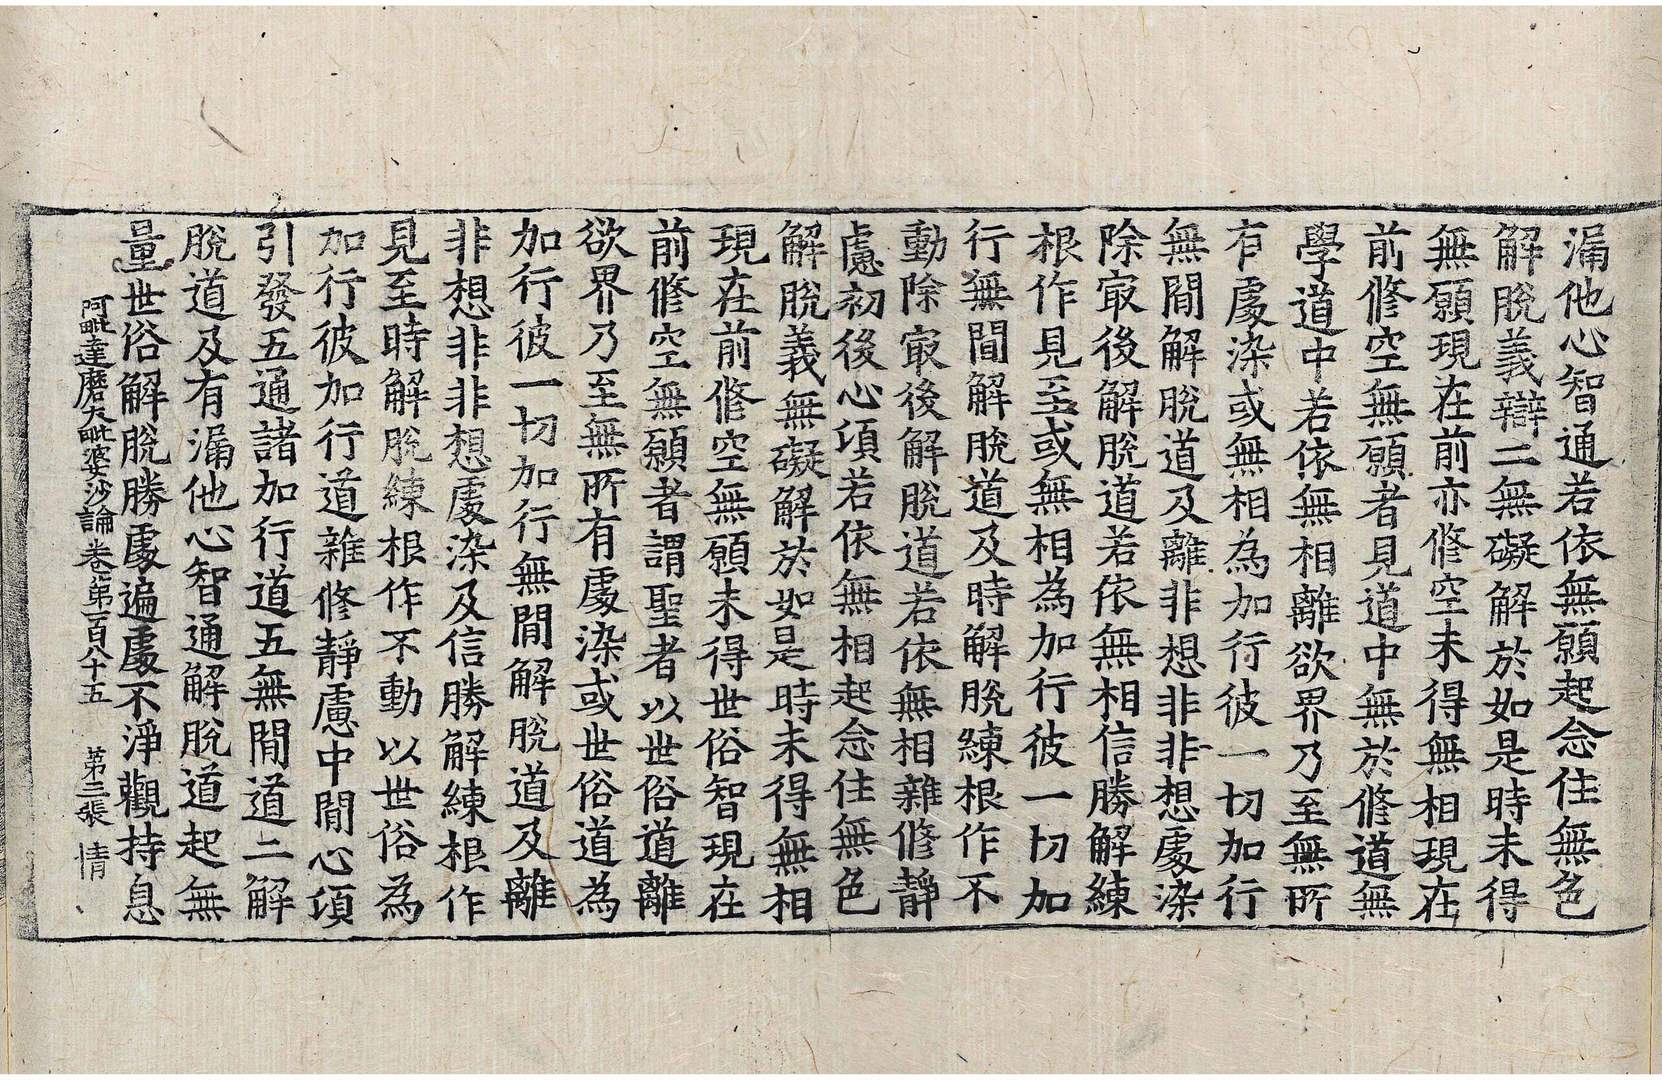 漏他心智通若依無願起念住無色
解脫義辯二無礙解於如是時未得
無願現在前亦修空未得無相現在
前修空無願者見道中無於修道無
學道中若依無相離欲界乃至無所
有處染或無相為加行彼一切加行
無間解脫道及離非想非非想處染
除㝡後解脫道若依無相信勝解練
根作見至或無相為加行彼一切加
行無間解脫道及時解脫練根作不
動除㝡後解脫道若依無相雜修靜
慮初後心頃若依無相起念住無色
解脫義無礙解於如是時未得無相
現在前修空無願未得世俗智現在
前修空無願者謂聖者以世俗道離
欲界乃至無所有處染或世俗道為
加行彼一切加行無間解脫道及離
非想非非想處染及信勝解練根作
見至時解脫練根作不動以世俗為
加行彼加行道雜修靜慮中間心頃
引發五通諸加行道五無間道二解
脫道及有漏他心智通解脫道起無
量世俗解脫勝處遍處不淨觀持息
阿毗達磨大毗婆沙論卷第一百八十五 第三張 情